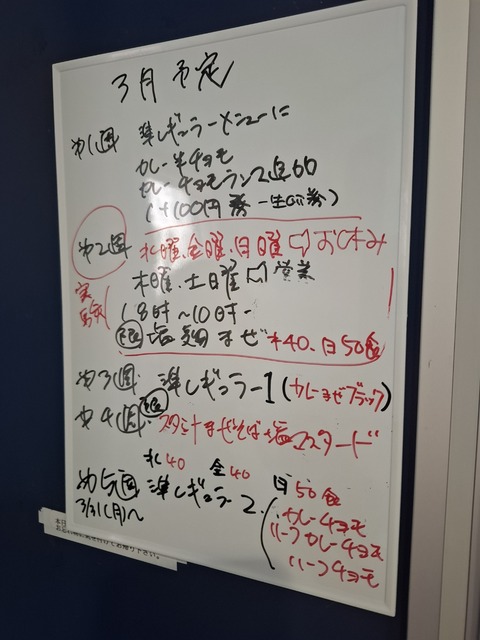 3月予定
第1週 準レギュラーメニューに
カレー半チョモ
カレーチョモランマ
(+100円券
第2週 水曜、金曜、日曜⇨お休み
実験 木曜、土日曜⇨営業
(8時～10時
限 塩 まぜ 木40、日50食
第3週 準レギュラー1(カレーまぜブラック)
第4週 限 スタミナまぜそば 塩マスタード
木40 金40 日50食
第5週 準レギュラー2
3/31(月)～
カレーチョモ
ハーフカレーチョモ
ハーフチョモ